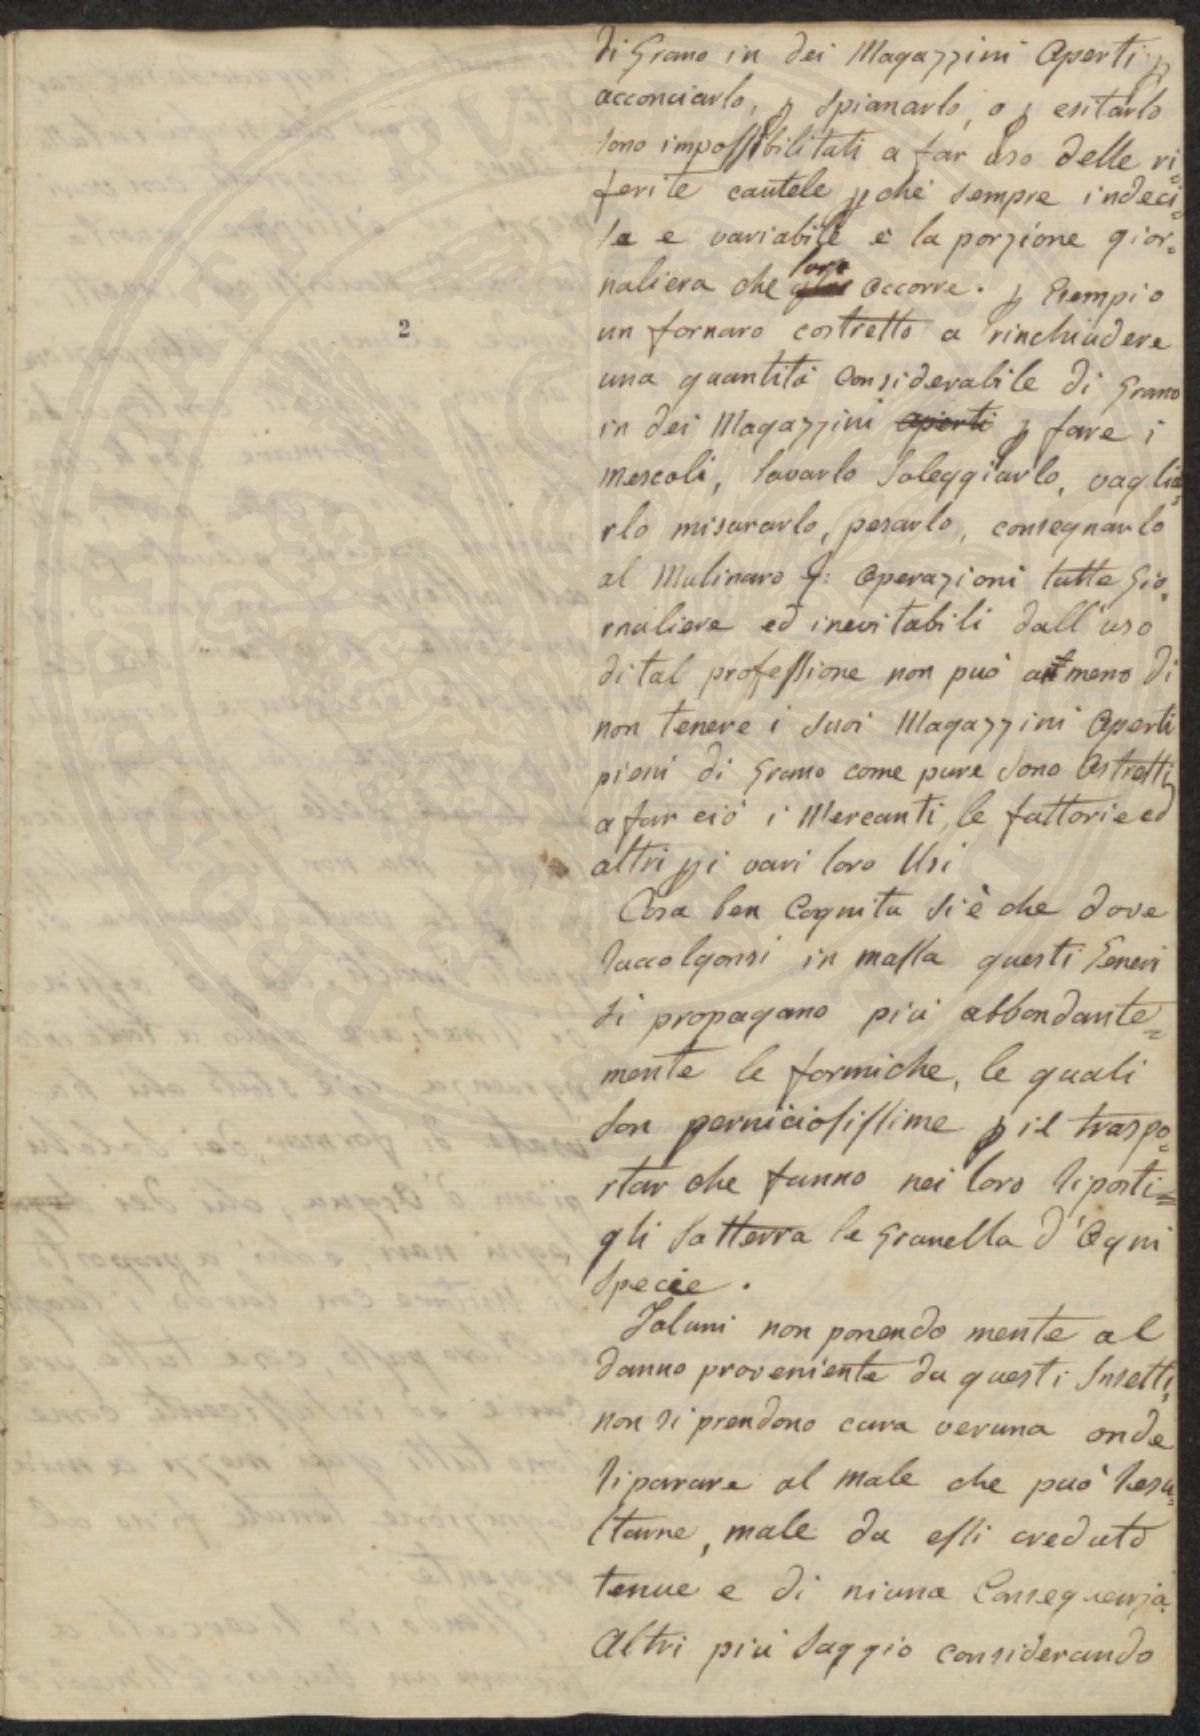 di Grano in dei Magazzini Aperti p
acconciarlo, p spianarlo, o p esitarlo
sono impossibilitati a far uso delle ri=
ferite cautele pchè sempre indeci=
sa e variabile è la porzione gior=
naliera che loro occorre. p Esempio
un fornaro costretto a rinchiudere
una quantità Considerabile di Grano
in dei Magazzini aperti p fare i
mescoli, lavarlo soleggiarlo, vaglia=
rlo misurarlo, pesarlo, consegnarlo
al Mulinaro Operazioni tutte Gio=
rnaliere ed inevitabili dall'uso
di tal professione non può meno di
non tenere i suoi Magazzini Aperti
pieni di Grano come pure sono Astretti
a far ciò i Mercanti, le fattorie ed
altri pi vari loro Usi
Cosa ben Cognita si è che dove
raccolgonsi in massa questi Generi
si propagano più abbondante=
mente le formiche, le quali
son perniciosissime p il traspo=
rtar che fanno nei loro riposti=
gli sotterra le Granella d'Ogni
specie.
Taluni non ponendo mente al
danno proveniente da questi Insetti,
non si prendono cura veruna onde
riparare al male che può resu=
ltarne, male da essi creduto
tenue e di niuna Conseguenza.
Altri più saggio considerando
2